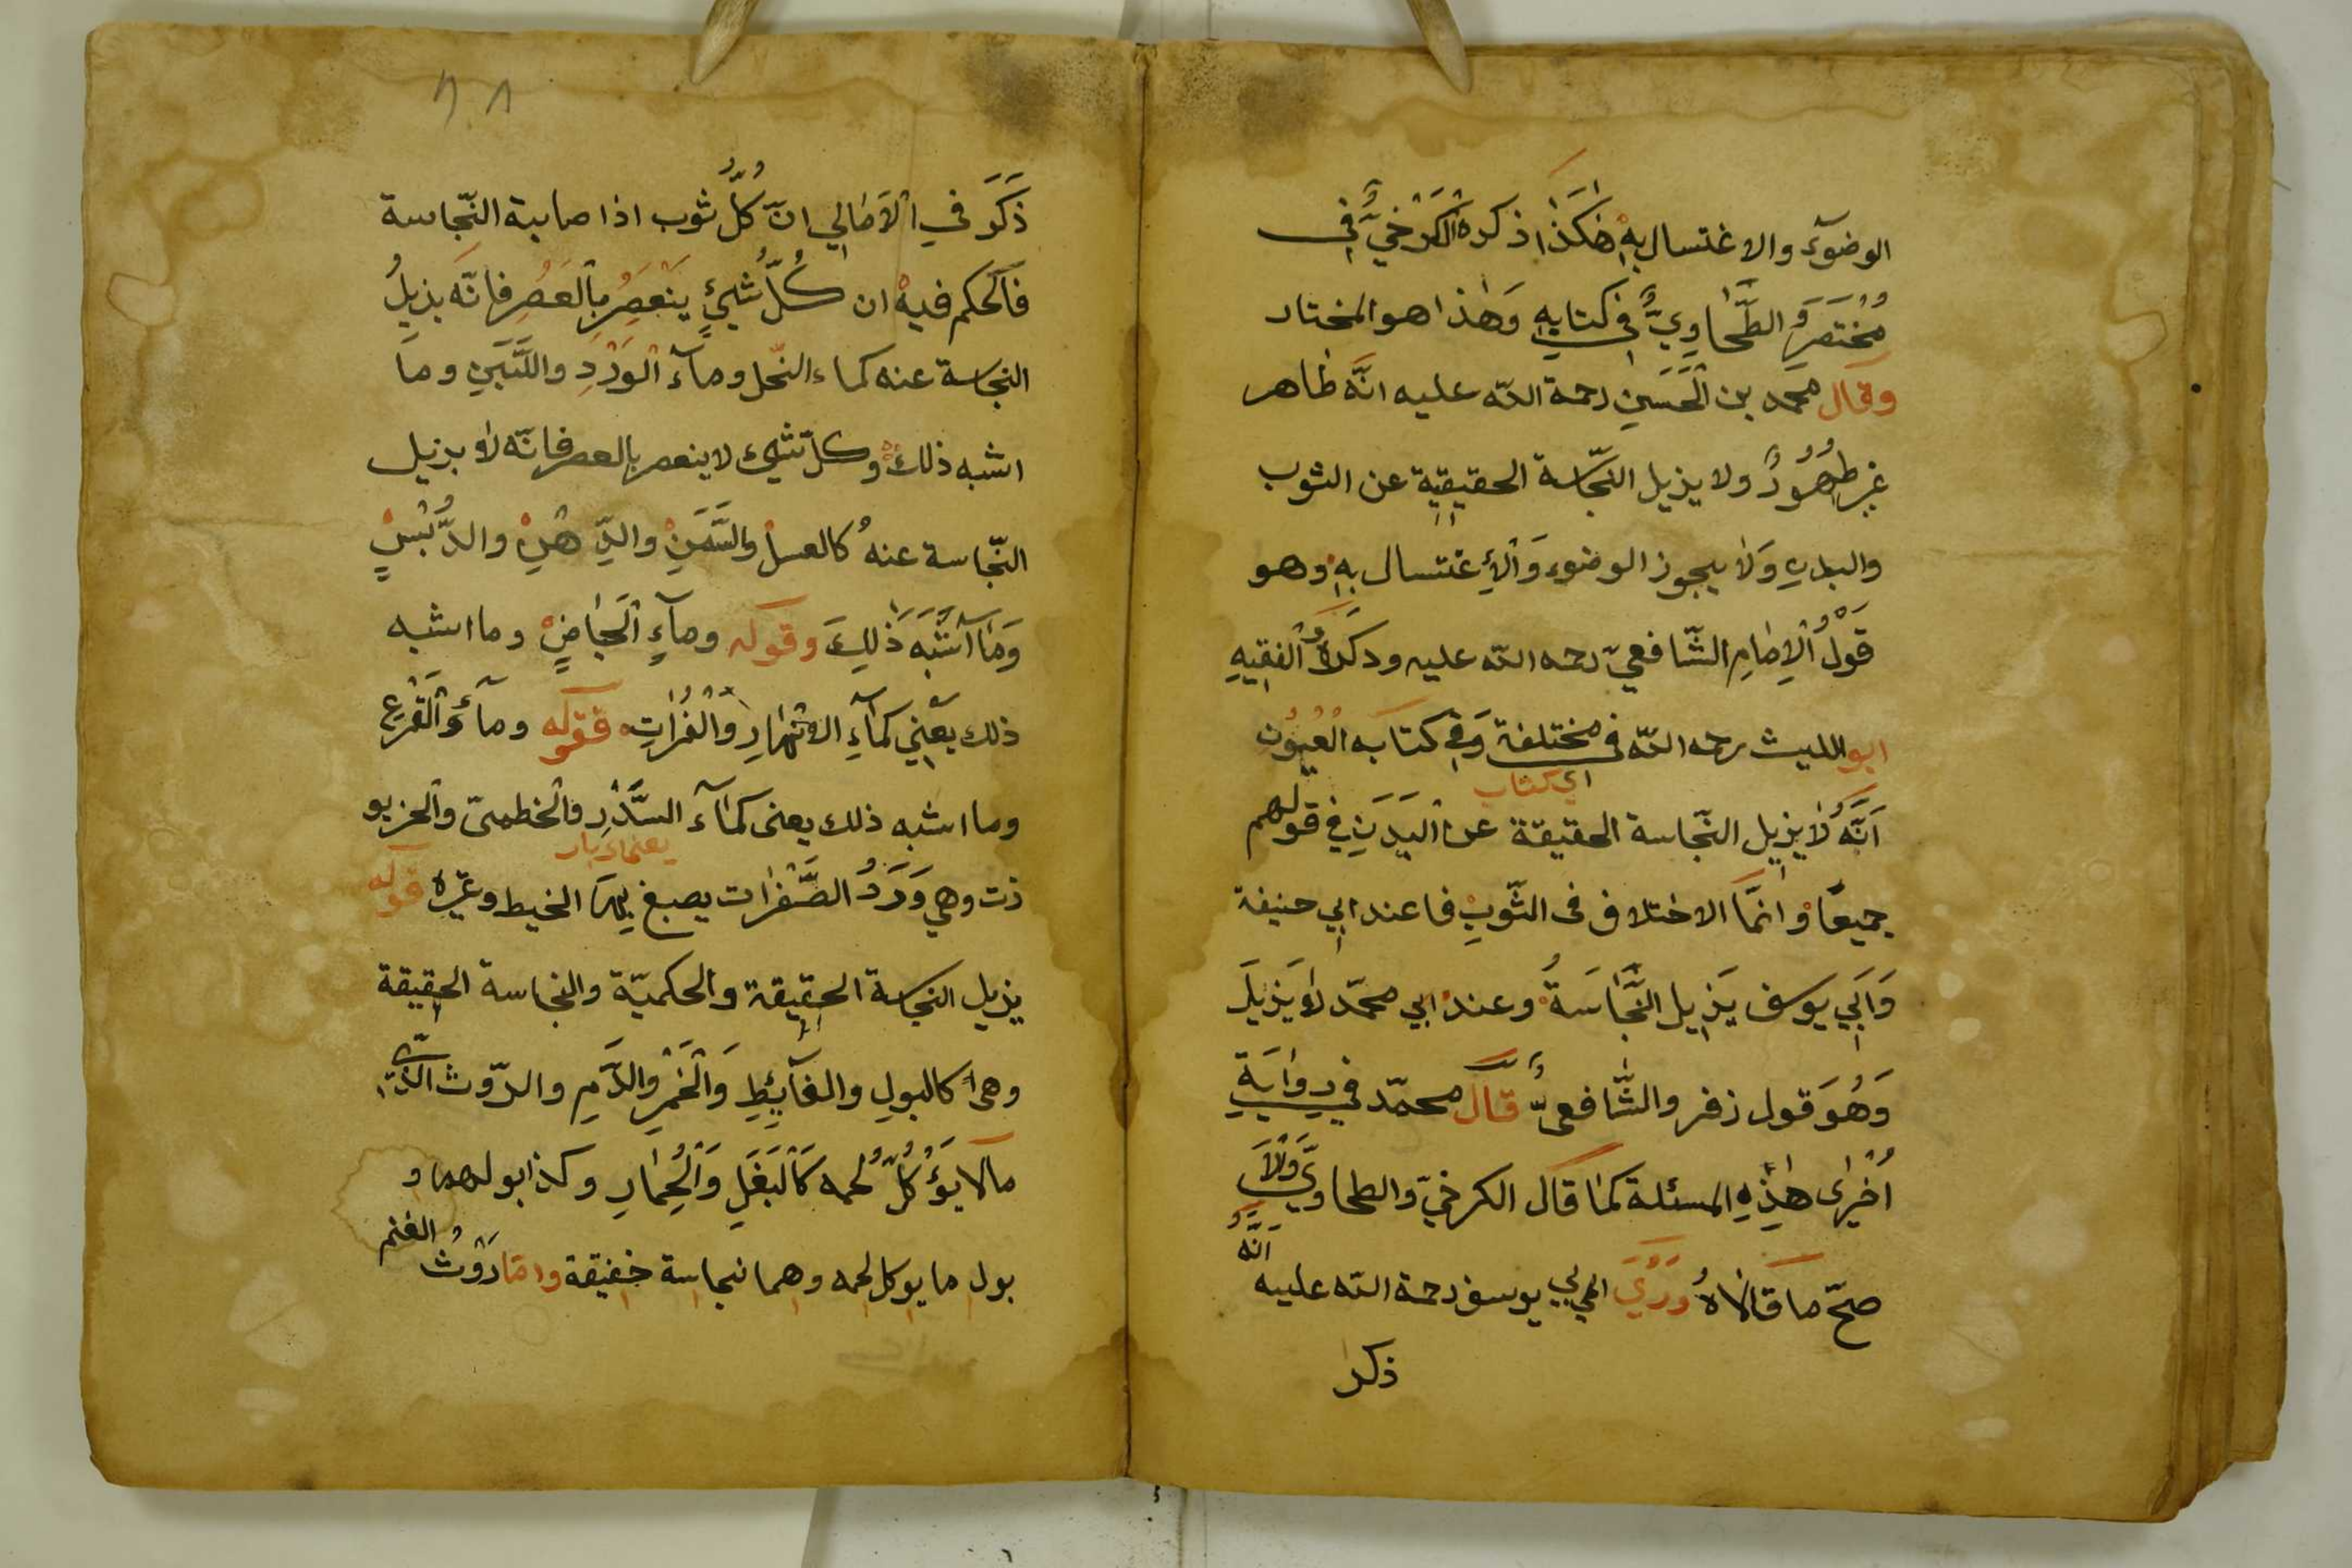 الوضوٓء والاغتسال بِهِ هٰكَذَا ذكره الْكَرْخِيُّ فِى
مُخْتَصَرَ وَ الطَّحَاوِيُّ فِي كتابِهِ وَهٰذا هو المختار
وقال محمد بن الْحَسَنِ رحمة اللّه عليه انَّه طاهر
غير طَهُورٌ ولا يزيل النّجاسة الحقيقيّة عن الثوب
والبدنِ وَلا يجوز الوضوء وَالْاِغتسال بِهِ وهو
قَوْلُ الْاِمَامِ الشّافعيّ رحمه اللّه عليه وذكَرَهُ الْفقيهِ
ابو الليث رحمه اللّه فى مختلفة وَفِى كتابه الْعُيُونِ
اى كتاب
اَنَّهُ لا يزيل النّجاسة الحقيقة عن الْبَدَنِ فِي قولهم
جميعًا وانمَّا الاختلاف فى الثّوبِ فاعند ابي حنيفة
وَاَبي يوسف يَزيل النَّجَاسَةُ وعند ابي محمّد لا يَزيلَ
وَهُوَ قول زفر والشّافعىّ قال محمّد فِي رِوَايَةِ
اُخْرٰى هٰذِهِ المسئلة كمٰا قال الكرخيّ والطحاويّ وَالْاَ
صحّ ما قَالَاهُ وَرُوِيَ ابي يوسف رحمة اللّه عليه اَنَّهُ
ذكر
ذَكَرَ فِي الْاَمَالِي انّ كُلَّ ثوب اذا صابة النّجاسة
فالْحكم فيهْ ان كُلُّ شَيْئٍ يَنْعَصِرُ بِالْعَصْرِ فانّه يزيلُ
النجاسة عنه كماء النّحل ومآء الْوَرْدِ واللَّبَنِ وما
اشبه ذلك وكلّ شيئ لا ينعصر بالعصر فانّه لا يزيل
النّجاسة عنهُ كالعسل والسَّمَنِ والدّهْنِ والدُّبْسِ
وَمَا اَشْبَهَ ذٰلِكَ وقوله ومآءِ الْحِيَاضِ وما اشبه
ذلك يعْنِي كمآءِ الانْهَارِ وَالْفُرَاتِ فقوله ومآءِ الْقَرْعِ
وما اشبه ذلك يعنى كمٰآء السَّدْرِ والْخطمىّ والخربو
يعنى
ذت وهي وَرَدُ الصَّفْرَات يصبغ بِهَا الخيط وغيره قوله
يزيل النجاسة الحقيقة والحكميّة والنجاسة الحقيقة
وهى كالبولِ والغآئِطِ وَالْخَمْرِ والدَّمِ والرّوث الّتى
مالا يُؤْكَلُ لحمه كَالْبَغَلِ وَالْحِمَارِ وكذا بولهما و
بول ما يوكل لحمه وهما نجاسة خفيفة وامّا رَوْثُ الغنم